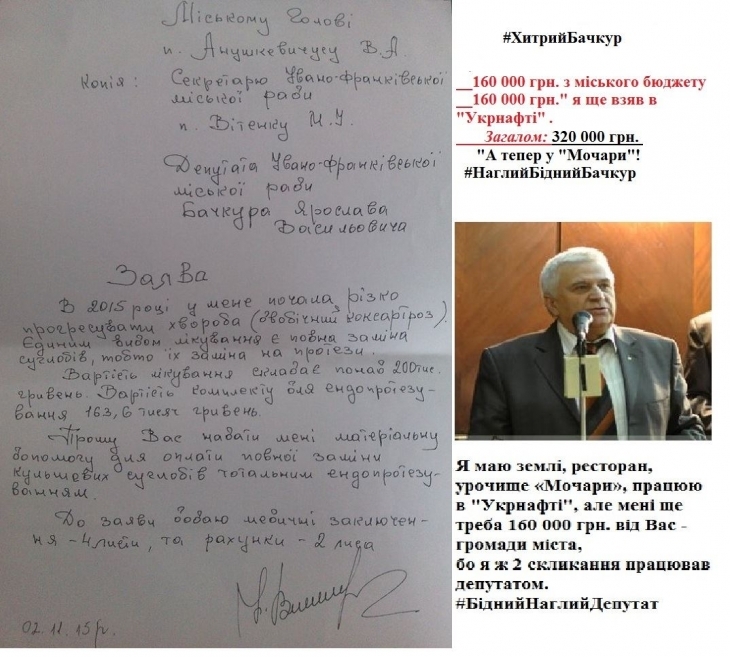 Міському Голові
п. Анушкевичусу В.А.
Копія: Секретарю Івано-Франківської
міської ради
п. Вітенку М.І.
Депутата Івано-Франківської
міської ради
Бачкура Ярослава
Васильовича
Заява
В 2015 році у мене почала різко
прогресувати хвороба (двобічний коксартроз).
Єдиним видом лікування є повна заміна
суглобів, тобто їх заміна на протези.
Вартість лікування складає понад 200 тис.
гривень. Вартість комплекту для ендопротезу-
вання 163,6 тисяч гривень.
Прошу Вас надати мені матеріальну
допомогу для оплати повної заміни
кульшевих суглобів тотальним ендопротезу-
ванням.
До заяви додаю медичні заключен-
ня - 4 листи, та рахунки - 2 листа
02.11.15р.
#ХитрийБачкур
__160 000 грн. з міського бюджету
__160 000 грн." я ще взяв в
"Укрнафті" .
Загалом: 320 000 грн.
"А тепер у "Мочари"!
#НаглийБіднийБачкур
Я маю землі, ресторан,
урочище «Мочари», працюю
в "Укрнафті", але мені ще
треба 160 000 грн. від Вас -
громади міста,
бо я ж 2 скликання працював
депутатом.
#БіднийНаглийДепутат